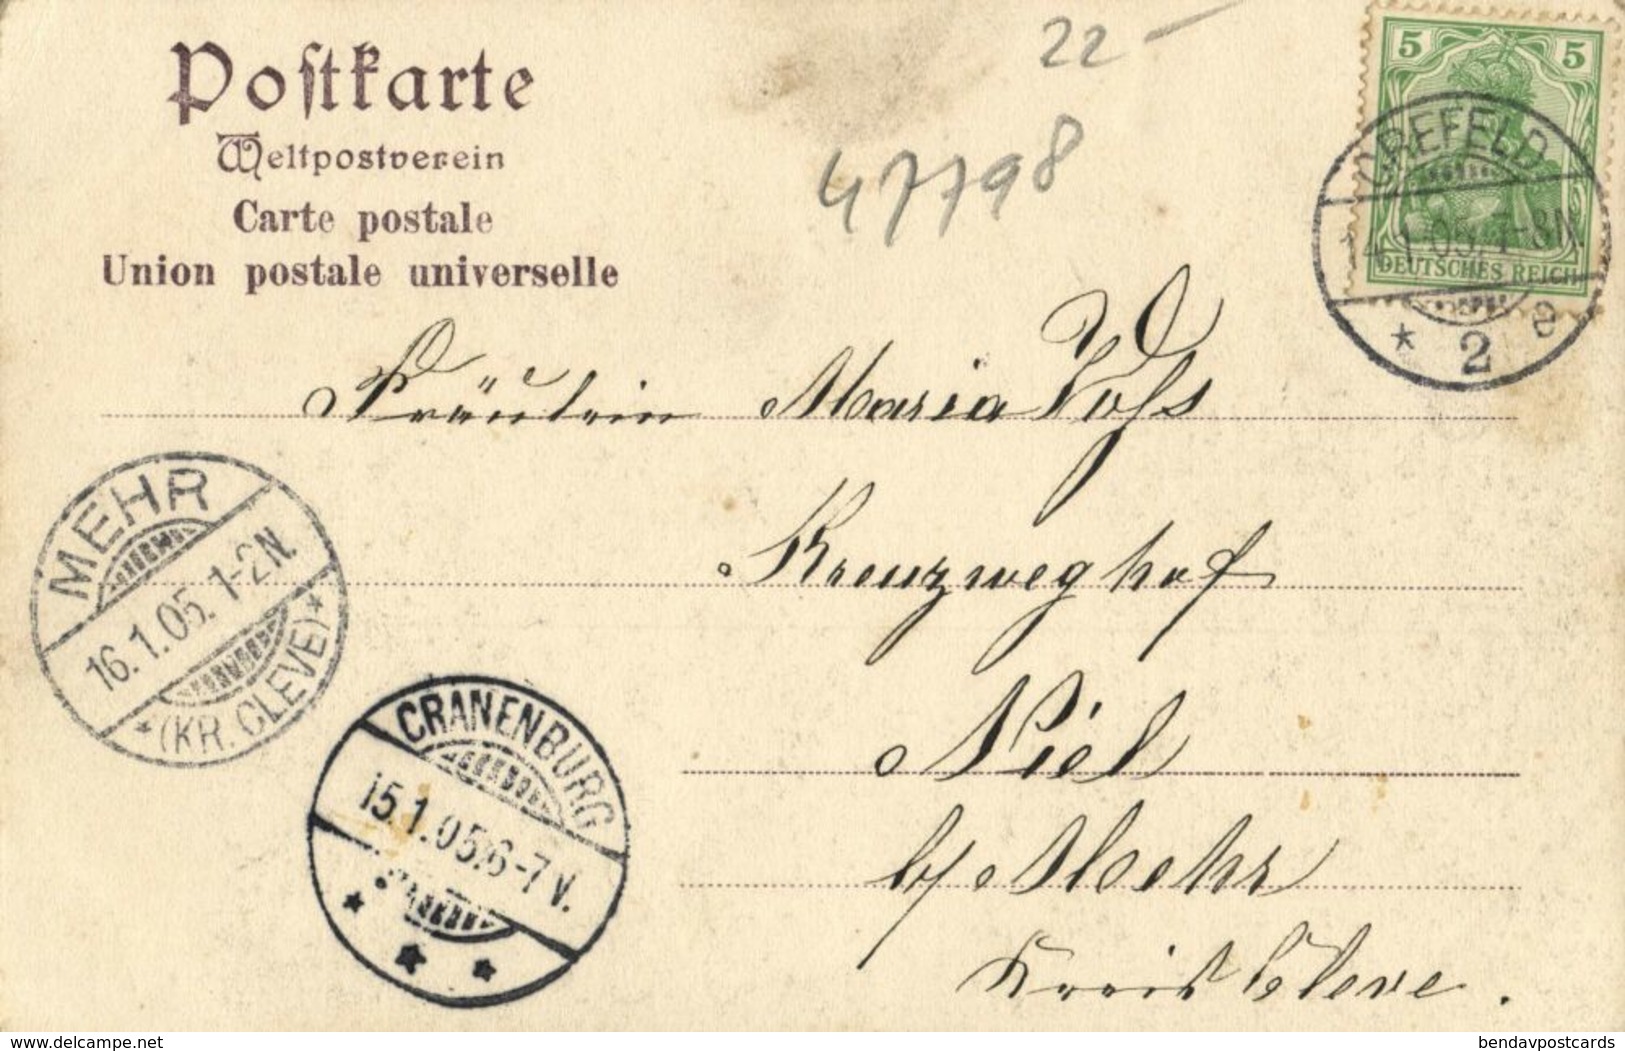 Postkarte
Weltpostverein
Carte postale
Union postale universelle
22 –
47798
5 5
DEUTSCHES REICH
CREFELD
14.1.05.7-8N
* 2 e
Fräulein Maria Vols
Kreuzweghof
Niel
b/ Mehr
Kreis Cleve.
MEHR
16.1.05. 1-2N.
*(KR. CLEVE)*
CRANENBURG
15.1.05.6-7V.
www.delcampe.net
bendavpostcards